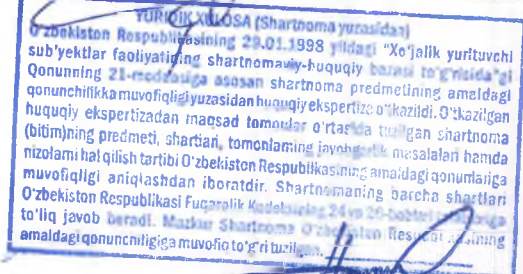 YURIDIK XULOSA (Shartnoma yuzasidan)
O'zbekiston Respublikasining 29.01.1998 yildagi "Xo'jalik yurituvchi
sub'yektlar faoliyatining shartnomaviy-huquqiy bazasi to'g'risida"gi
Qonunning 21-moddasiga asosan shartnoma predmetining amaldagi
qonunchilikka muvofiqligi yuzasidan huquqiy ekspertiza o'tkazildi. O'tkazilgan
huquqiy ekspertizadan maqsad tomonlar o'rtasida tuzilgan shartnoma
(bitim)ning predmeti, shartlari, tomonlarning javobgarlik masalalari hamda
nizolarni hal qilish tartibi O'zbekiston Respublikasining amaldagi qonunlariga
muvofiqligi aniqlashdan iboratdir. Shartnomaning barcha shartlari
O'zbekiston Respublikasi Fuqarolik Kodeksining 24 va 26-boblari
to'liq javob beradi. Mazkur Shartnoma O'zbekiston Respublikasining
amaldagi qonunchiligiga muvofiq to'g'ri tuzilgan.